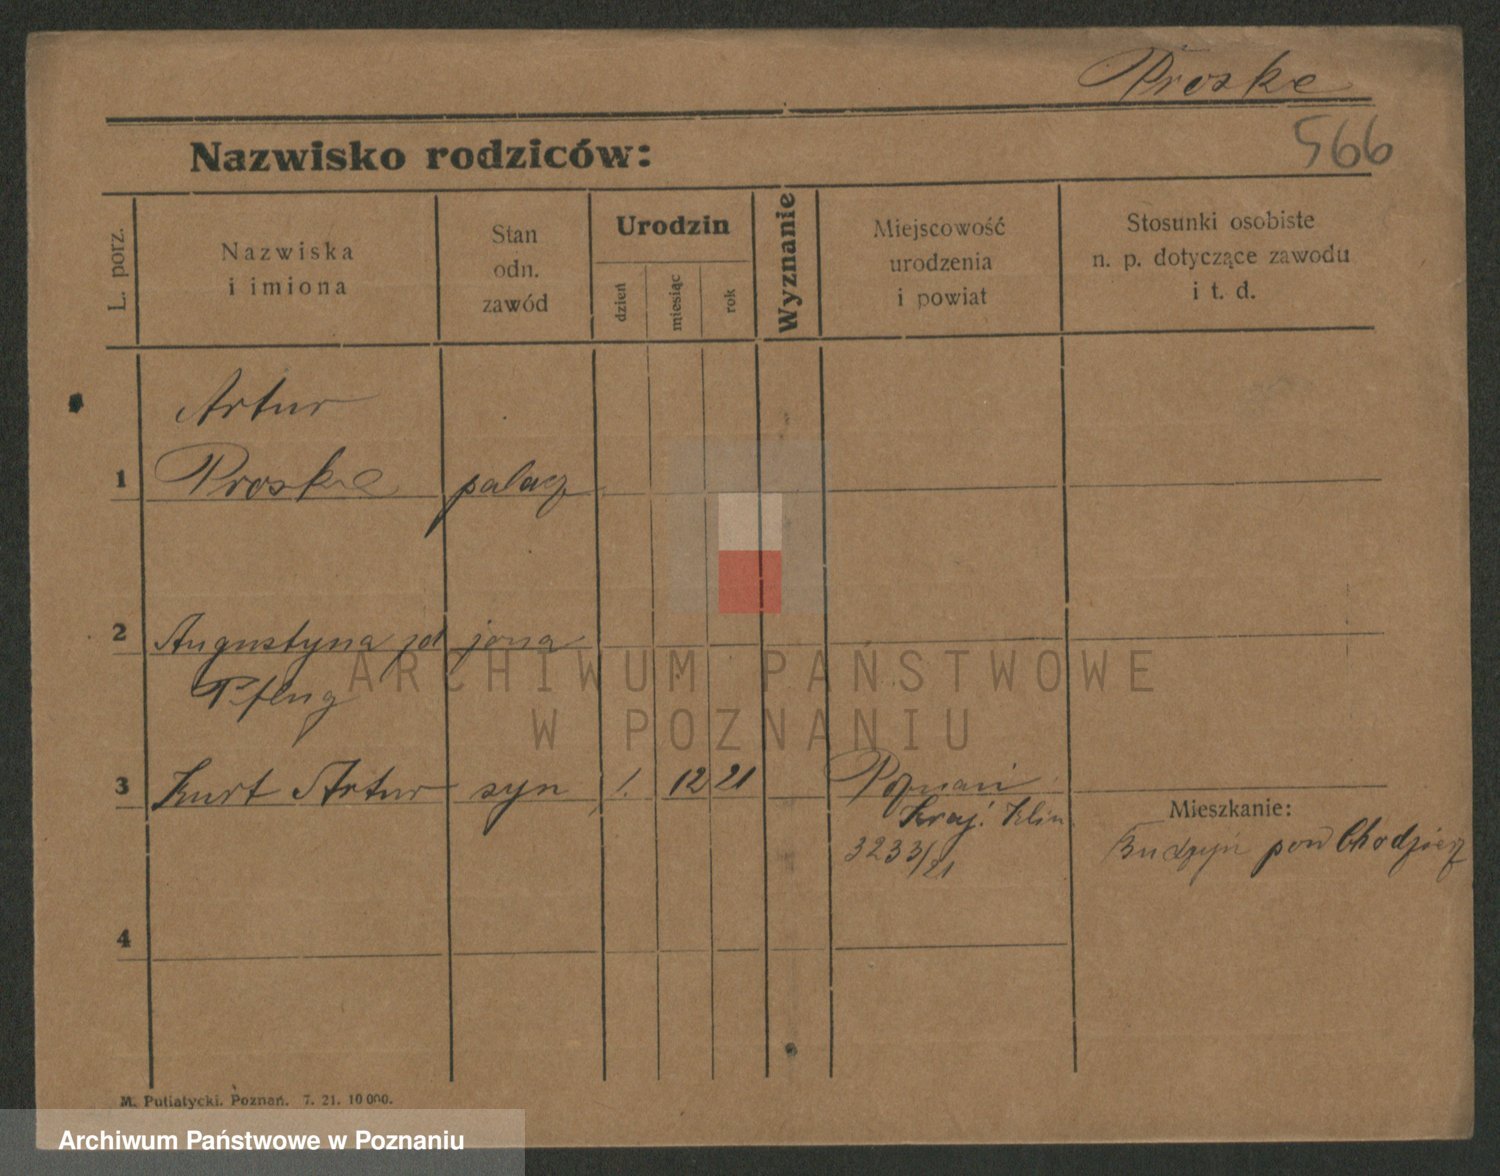 Proske
566
Nazwisko rodziców:
L. porz.
Nazwiska
i imiona
Stan
odn.
zawód
Urodzin
dzień
miesiąc
rok
Wyznanie
Miejscowość
urodzenia
i powiat
Stosunki osobiste
n. p. dotyczące zawodu
i t. d.
Artur
1 Proske palacz
2 Augustyna żona
Pflug
3 Kurt Artur syn 1. 12 21 Poznań
Kraj. Klin.
3233/21
Mieszkanie:
Budzyń pow Chodzież
4
M. Putiatycki. Poznań. 7. 21. 10 000.
ARCHIWUM PAŃSTWOWE
W POZNANIU
Archiwum Państwowe w Poznaniu